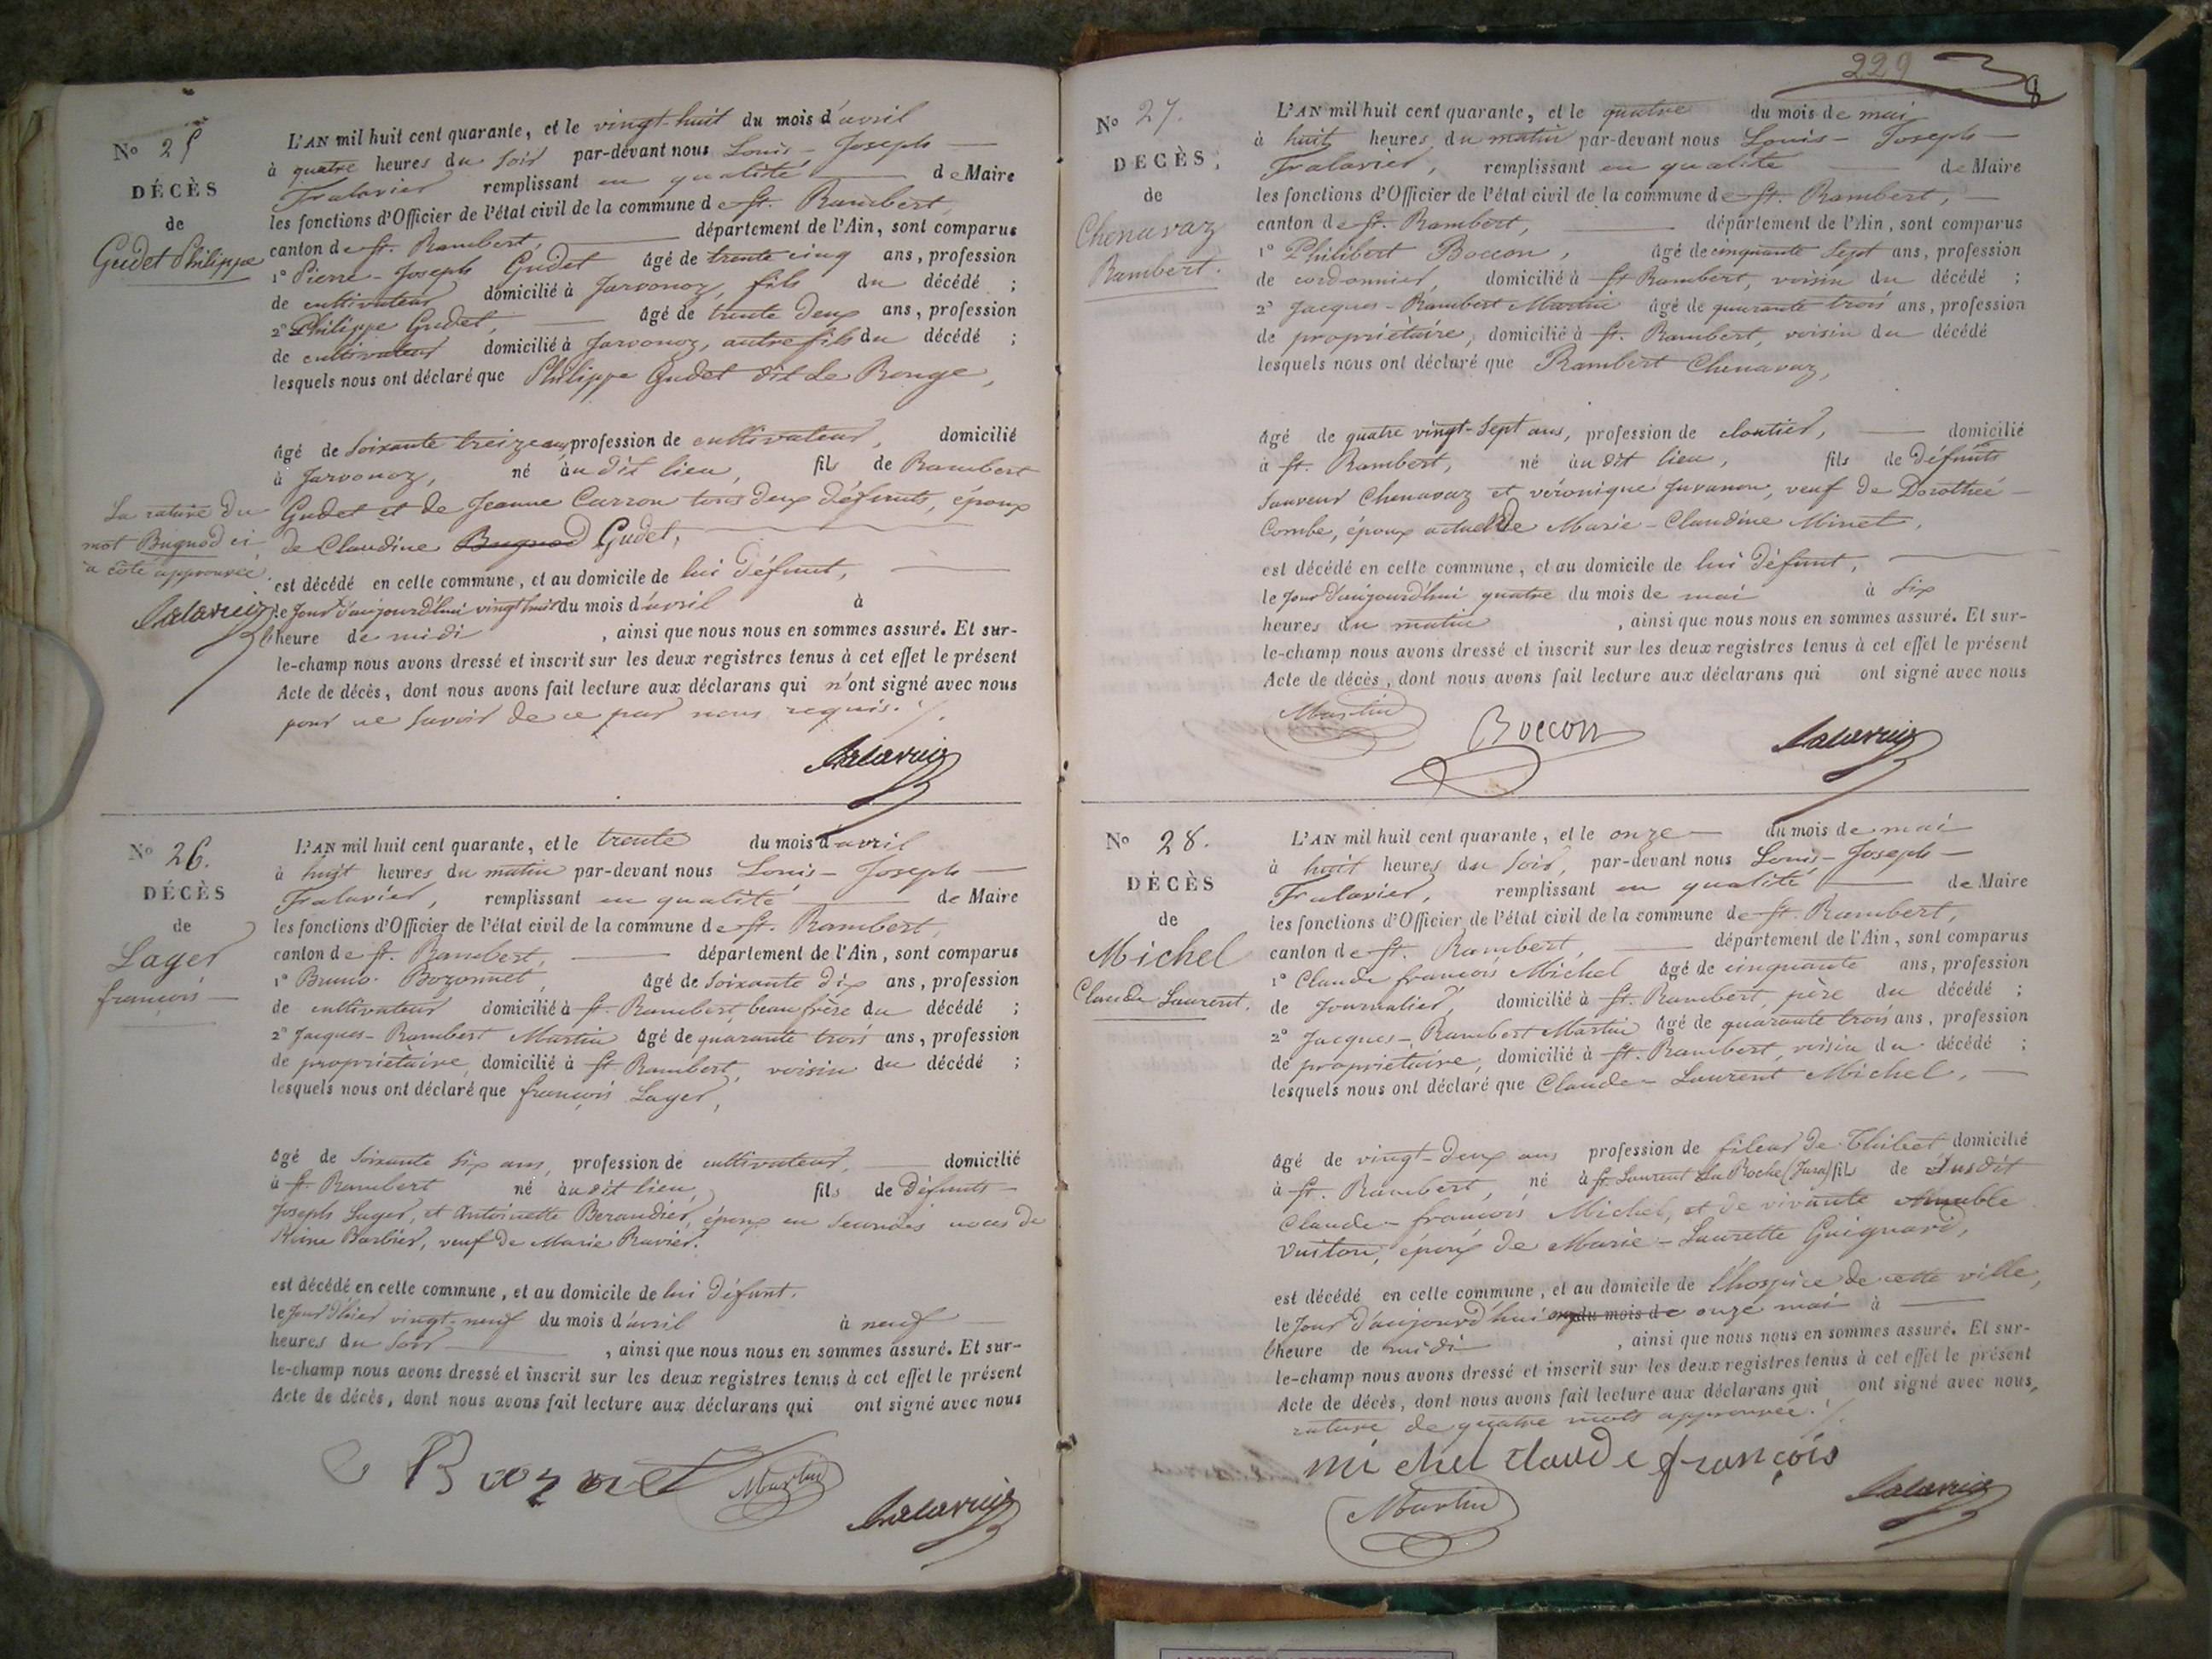 No 25
DÉCÈS
de
Gudet Philippe
L'AN mil huit cent quarante, et le vingt-huit du mois d'avril
à quatre heures du soir par-devant nous Louis - Joseph
remplissant en qualité de Maire
les fonctions d'Officier de l'état civil de la commune de St. Rambert,
canton de St. Rambert, département de l'Ain, sont comparus
1° Pierre - Joseph Gudet âgé de trente cinq ans, profession
de cultivateur domicilié à Javonoz, fils du décédé ;
2° Philippe Gudet, âgé de trente deux ans, profession
de cultivateur domicilié à Javonoz, autre fils du décédé ;
lesquels nous ont déclaré que Philippe Gudet dit Le Rouge,
âgé de soixante treize ans, profession de cultivateur, domicilié
à Javonoz, né au dit lieu, fils de Rambert
Gudet et de Jeanne Carron tous deux défunts, époux
de Claudine Bugnod Gudet,
La rature du
mot Bugnod ci
à côté approuvée.
est décédé en cette commune, et au domicile de lui défunt,
le jour d'aujourd'hui vingt huit du mois d'avril à
l'heure de midi , ainsi que nous nous en sommes assuré. Et sur-
le-champ nous avons dressé et inscrit sur les deux registres tenus à cet effet le présent
Acte de décès, dont nous avons fait lecture aux déclarans qui n'ont signé avec nous
pour ne savoir de ce par nous requis. /.
No 26.
DÉCÈS
de
Lager
françois
L'AN mil huit cent quarante, et le trente du mois d'avril
à huit heures du matin par-devant nous Louis - Joseph
remplissant en qualité de Maire
les fonctions d'Officier de l'état civil de la commune de St. Rambert,
canton de St. Rambert, département de l'Ain, sont comparus
1° Bruno Bozonnet, âgé de soixante dix ans, profession
de cultivateur domicilié à St. Rambert, beau frère du décédé ;
2° Jacques - Rambert Martin âgé de quarante trois ans, profession
de propriétaire, domicilié à St Rambert, voisin du décédé ;
lesquels nous ont déclaré que françois Lager,
âgé de soixante six ans, profession de cultivateur, domicilié
à St. Rambert né au dit lieu, fils de défunts
Joseph Lager, et Antoinette Beraudier, époux en secondes noces de
Barbier, veuf de Marie Ravier.
est décédé en cette commune, et au domicile de lui défunt.
le jour d'hier vingt-neuf du mois d'avril à neuf
heures du soir , ainsi que nous nous en sommes assuré. Et sur-
le-champ nous avons dressé et inscrit sur les deux registres tenus à cet effet le présent
Acte de décès, dont nous avons fait lecture aux déclarans qui ont signé avec nous
Martin
229
8
No 27.
DECÈS,
de
Chenavaz
Rambert.
L'AN mil huit cent quarante, et le quatre du mois de mai
à huit heures du matin par-devant nous Louis - Joseph
remplissant en qualité de Maire
les fonctions d'Officier de l'état civil de la commune de St. Rambert,
canton de St. Rambert, département de l'Ain, sont comparus
1° Philibert Boccon, âgé de cinquante sept ans, profession
de cordonnier, domicilié à St Rambert, voisin du décédé ;
2° Jacques - Rambert Martin âgé de quarante trois ans, profession
de propriétaire, domicilié à St. Rambert, voisin du décédé
lesquels nous ont déclaré que Rambert Chenavaz,
âgé de quatre vingt-sept ans, profession de cloutier, domicilié
à St. Rambert, né au dit lieu, fils de défunts
Sauveur Chenavaz et véronique Juvanon, veuf de Dorothée
Combe, époux actuel de Marie - Claudine Minet,
est décédé en cette commune, et au domicile de lui défunt,
le jour d'aujourd'hui quatre du mois de mai à six
heures du matin , ainsi que nous nous en sommes assuré. Et sur-
le-champ nous avons dressé et inscrit sur les deux registres tenus à cet effet le présent
Acte de décès, dont nous avons fait lecture aux déclarans qui ont signé avec nous
Martin Boccon
No 28.
DÉCÈS
de
Michel
Claude Laurent.
L'AN mil huit cent quarante, et le onze du mois de mai
à huit heures du soir, par-devant nous Louis - Joseph
remplissant en qualité de Maire
les fonctions d'Officier de l'état civil de la commune de St. Rambert,
canton de St. Rambert, département de l'Ain, sont comparus
1° Claude françois Michel âgé de cinquante ans, profession
de journalier, domicilié à St. Rambert, père du décédé ;
2° Jacques - Rambert Martin âgé de quarante trois ans, profession
de propriétaire, domicilié à St. Rambert, voisin du décédé ;
lesquels nous ont déclaré que Claude - Laurent Michel,
âgé de vingt-deux ans profession de fileur de Thibet domicilié
à St. Rambert, né à St. Laurent La Roche (Jura) fils de Susdit
Claude - françois Michel, et de vivante
Vuiton, époux de Marie - Laurette Guignard,
est décédé en cette commune, et au domicile de l'hospice de cette ville,
le jour d'aujourd'hui du mois de onze mai à
l'heure de midi , ainsi que nous nous en sommes assuré. Et sur-
le-champ nous avons dressé et inscrit sur les deux registres tenus à cet effet le présent
Acte de décès, dont nous avons fait lecture aux déclarans qui ont signé avec nous,
rature de quatre mots approuvée. /.
michel claude françois
Martin